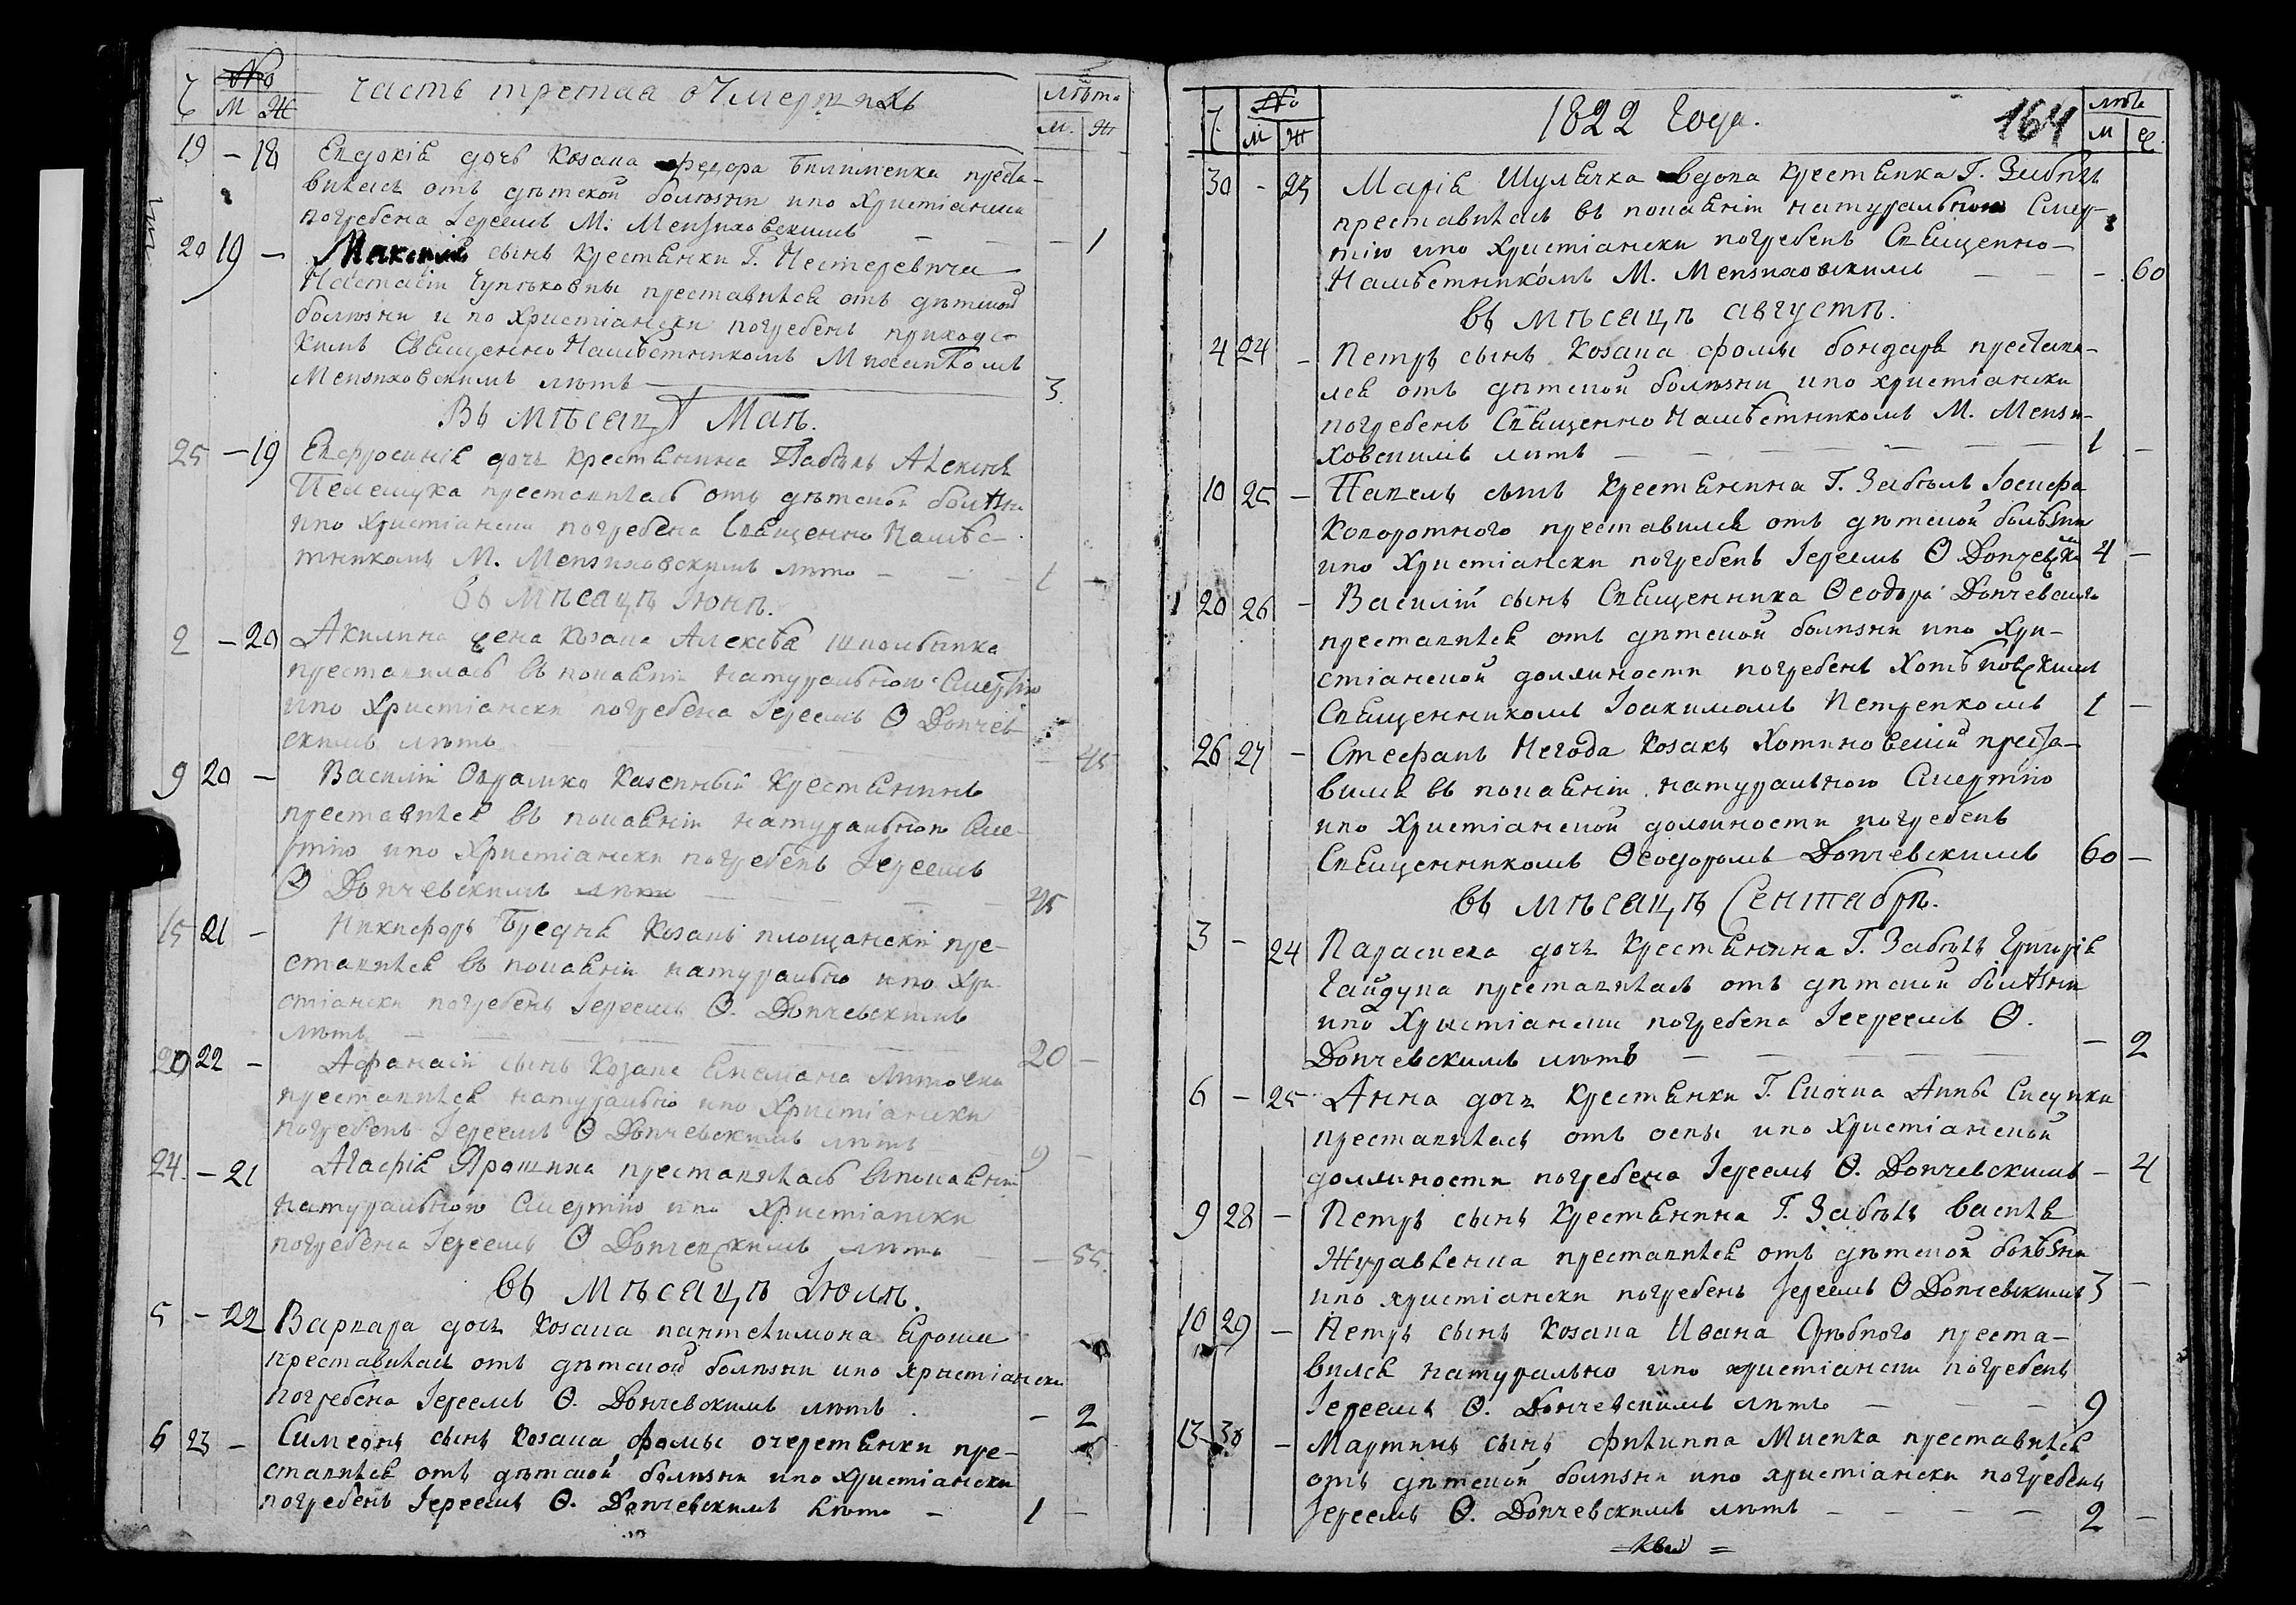 Ч No часть третая о Умершихъ лѣта
М Ж м. ж
19 – 18 Евдокія дочь козака Федора преста-
вилась отъ дѣтской болѣзни ипо Христіански
погребена Іереемъ М: Мензиховскимъ – – – 1
20 19 – Максимъ сынъ крестянки Г. Нестеревича
Настасіи преставился отъ дѣтской
болѣзни и по Христіански погребенъ приходс-
кимъ Священно Намѣстникомъ Михаиломъ
Мензиховскимъ лѣтъ – 3
Въ мѣсяцѣ Маѣ.
25 – 19 Евфросинія дочь крестянина Забѣлы Алексѣя
преставилась отъ дѣтской болѣзни
ипо Христіански погребена Священно Намѣс-
тникомъ М. Мензиховскимъ лѣто – – – 1 –
въ мѣсяцѣ Іюнѣ.
2 – 20 Акилина жена козака Алексѣя
преставилась въ покаяніи натуральною Смертію
ипо Христіански погребена Іереемъ Ѳ Дончев-
скимъ лѣтъ – 45
9 20 – Василій казенный крестянинъ
преставился въ покаяніи натуральною Сме-
ртію ипо Христіански погребенъ Іереемъ
Ѳ Дончевскимъ лѣтъ – – – 45
15 21 – Никифоръ козакъ площанскій пре-
ставился въ покаяніи натурально ипо Хри-
стіански погребенъ Іереемъ Ѳ. Дончевскимъ
лѣтъ – 20 –
20 22 – Афанасій сынъ козака
преставился натурально ипо Христіански
погребенъ Іереемъ Ѳ Дончевскимъ лѣтъ 9 –
24. – 21 Агафія Ярошиха преставилась впокаяніи
натуральною Смертію ипо Христіански
погребена Іереемъ Ѳ Дончевскимъ лѣтъ – – 55.
въ Мѣсяцѣ Іюлѣ.
5 – 22 Варвара дочь козака пантелимона Ероши
преставилась отъ дѣтской болѣзни ипо христіански
погребена Іереемъ Ѳ. Дончевскимъ лѣтъ . – 2
6 23 – Симеонъ сынъ козака фомы очеретянки пре-
ставился отъ дѣтской болѣзни ипо Христіански
погребенъ Іереемъ Ѳ. Дончевскимъ лѣто – 1 –
Ч. No 1822 Года. 164 лѣта
м ж м ж
30 – 23 Марія Шулячка вдова крестянка Г. Забѣлъ
преставилась въ покаяніи натуральною Смер-
тію ипо Христіански погребенъ Священно-
Намѣстникомъ М. Мензиховскимъ – – – 60
въ мѣсяцѣ августѣ.
4 24 – Петръ сынъ козака фомы бондаря преставил-
лся отъ дѣтской болѣзни ипо христіански
погребенъ Священно Намѣстникомъ М. Мензи-
ховскимъ лѣтъ – – – – – 1 –
10 25 – Павелъ сынъ крестянина Г. Забѣлъ Іосифа
Коворотного преставился отъ дѣтской болѣзни
ипо Христіански погребенъ Іереемъ Ѳ Дончевски 4 –
20 26 – Василій сынъ Священника Ѳеодора Дончевскаго
преставился отъ дѣтской болѣзни ипо Хри-
стіанской должности погребенъ
Священникомъ Іоакимомъ Петренкомъ 1 –
26 27 – Стефанъ Негода козакъ Хотиновскій преста-
вился въ покаяніи натуральною Смертію
ипо Христіанской должности погребенъ
Священникомъ Ѳеодоромъ Дончевскимъ 60 –
въ мѣсяцѣ Сентябрѣ.
3 – 24 Параскева дочь крестянина Г. Забѣлъ Григорія
Гайдука преставилась отъ дѣтской болѣзни
ипо Христіански погребена Іеереемъ Ѳ.
Дончевскимъ лѣтъ – – – – – 2
6 – 25 Анна дочь крестянки Г. Анны
преставилась отъ оспы ипо Христіанской
должности погребена Іереемъ Ѳ. Дончевскимъ – 4
9 28 – Петръ сынъ крестянина Г. Забѣлъ Василя
Журавленка преставился отъ дѣтской болѣзни
ипо христіански погребенъ Іереемъ Ѳ Дончевскимъ 3 –
10 29 – Петръ сынъ козака Ивана преста-
вился натурально ипо христіански погребенъ
Іереемъ Ѳ. Дончевскимъ лѣтъ – – – 9
13 30 – Мартинъ сынъ филиппа преставился
отъ дѣтской болѣзни ипо христіански погребенъ
Іереемъ Ѳ. Дончевскимъ лѣтъ – – – – 2 –